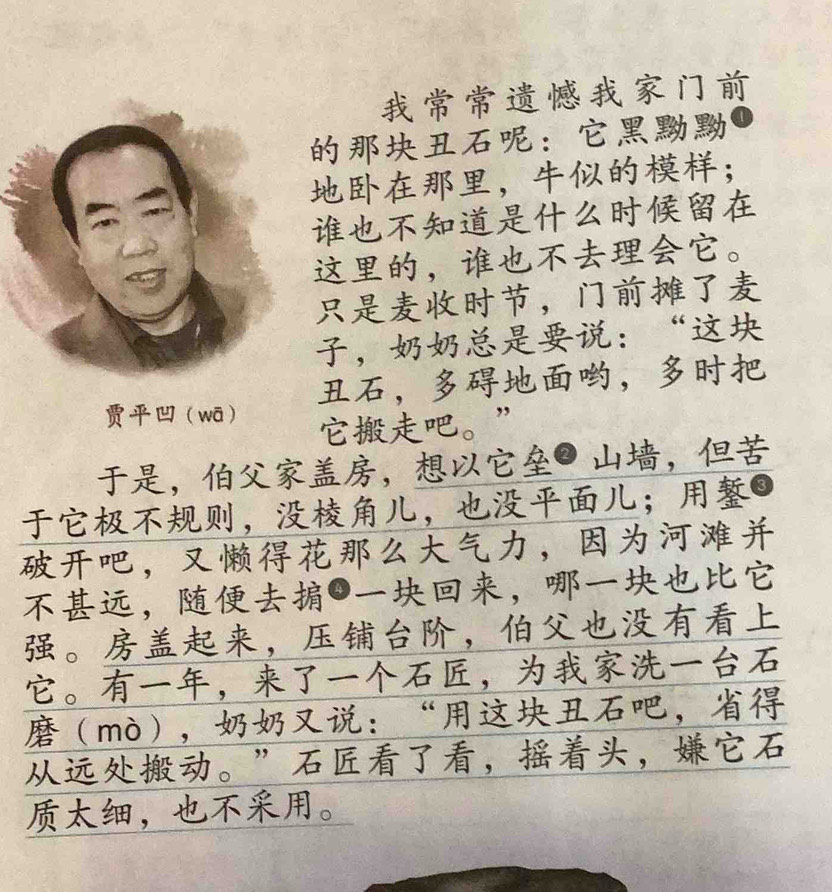 我常常遗憾我家门前
的那块丑石呢：它黑黝黝❶
地卧在那里，牛似的模样；
谁也不知道是什么时候留在
这里的，谁也不去理会它。
只是麦收时节，门前摊了麦
子，奶奶总是要说：“这块
丑石，多碍地面哟，多时把
它搬走吧。”
贾平凹（wā）
于是，伯父家盖房，想以它垒❷山墙，但苦
于它极不规则，没棱角儿，也没平面儿；用錾❸
破开吧，又懒得花那么大气力，因为河滩并
不甚远，随便去掮❹一块回来，哪一块也比它
强。房盖起来，压铺台阶，伯父也没有看上
它。有一年，来了一个石匠，为我家洗一台石
磨（mò），奶奶又说：“用这块丑石吧，省得
从远处搬动。”石匠看了看，摇着头，嫌它石
质太细，也不采用。